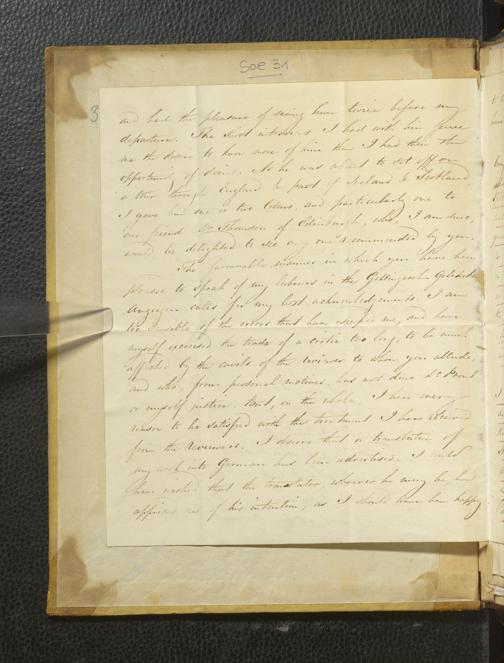 Soe 31
3
and had the pleasure of seeing him twice before my
departure. The short interviews I had with him gave
me the desire to know more of him than I had then the
opportunity of doing. As he was about to set off on
a tour through England & part of Ireland & Scotland
I gave him one or two letters, and particularly one to
our friend Dr Thomson of Edinburgh, who, I am sure,
would be delighted to see any one recommended by you.
The favourable manner in which you have been
pleased to speak of my labours in the Gottingische Gelehrte
Anzeigen calls for my best acknowledgements. I am
too sensible of the errors that have escaped me, and have
myself exercised the trade of a critic too long, to be much
affected by the cavils of the reviewer to whom you allude,
and who, from personal motives, has not done Dr
or myself justice. But, on the whole, I have every
reason to be satisfied with the treatment I have received
from the Reviewers. I observe that a translation of
my work into German has been advertised. I could
have wished that the translator, whoever he may be, had
apprised me of his intention, as I should have been happy